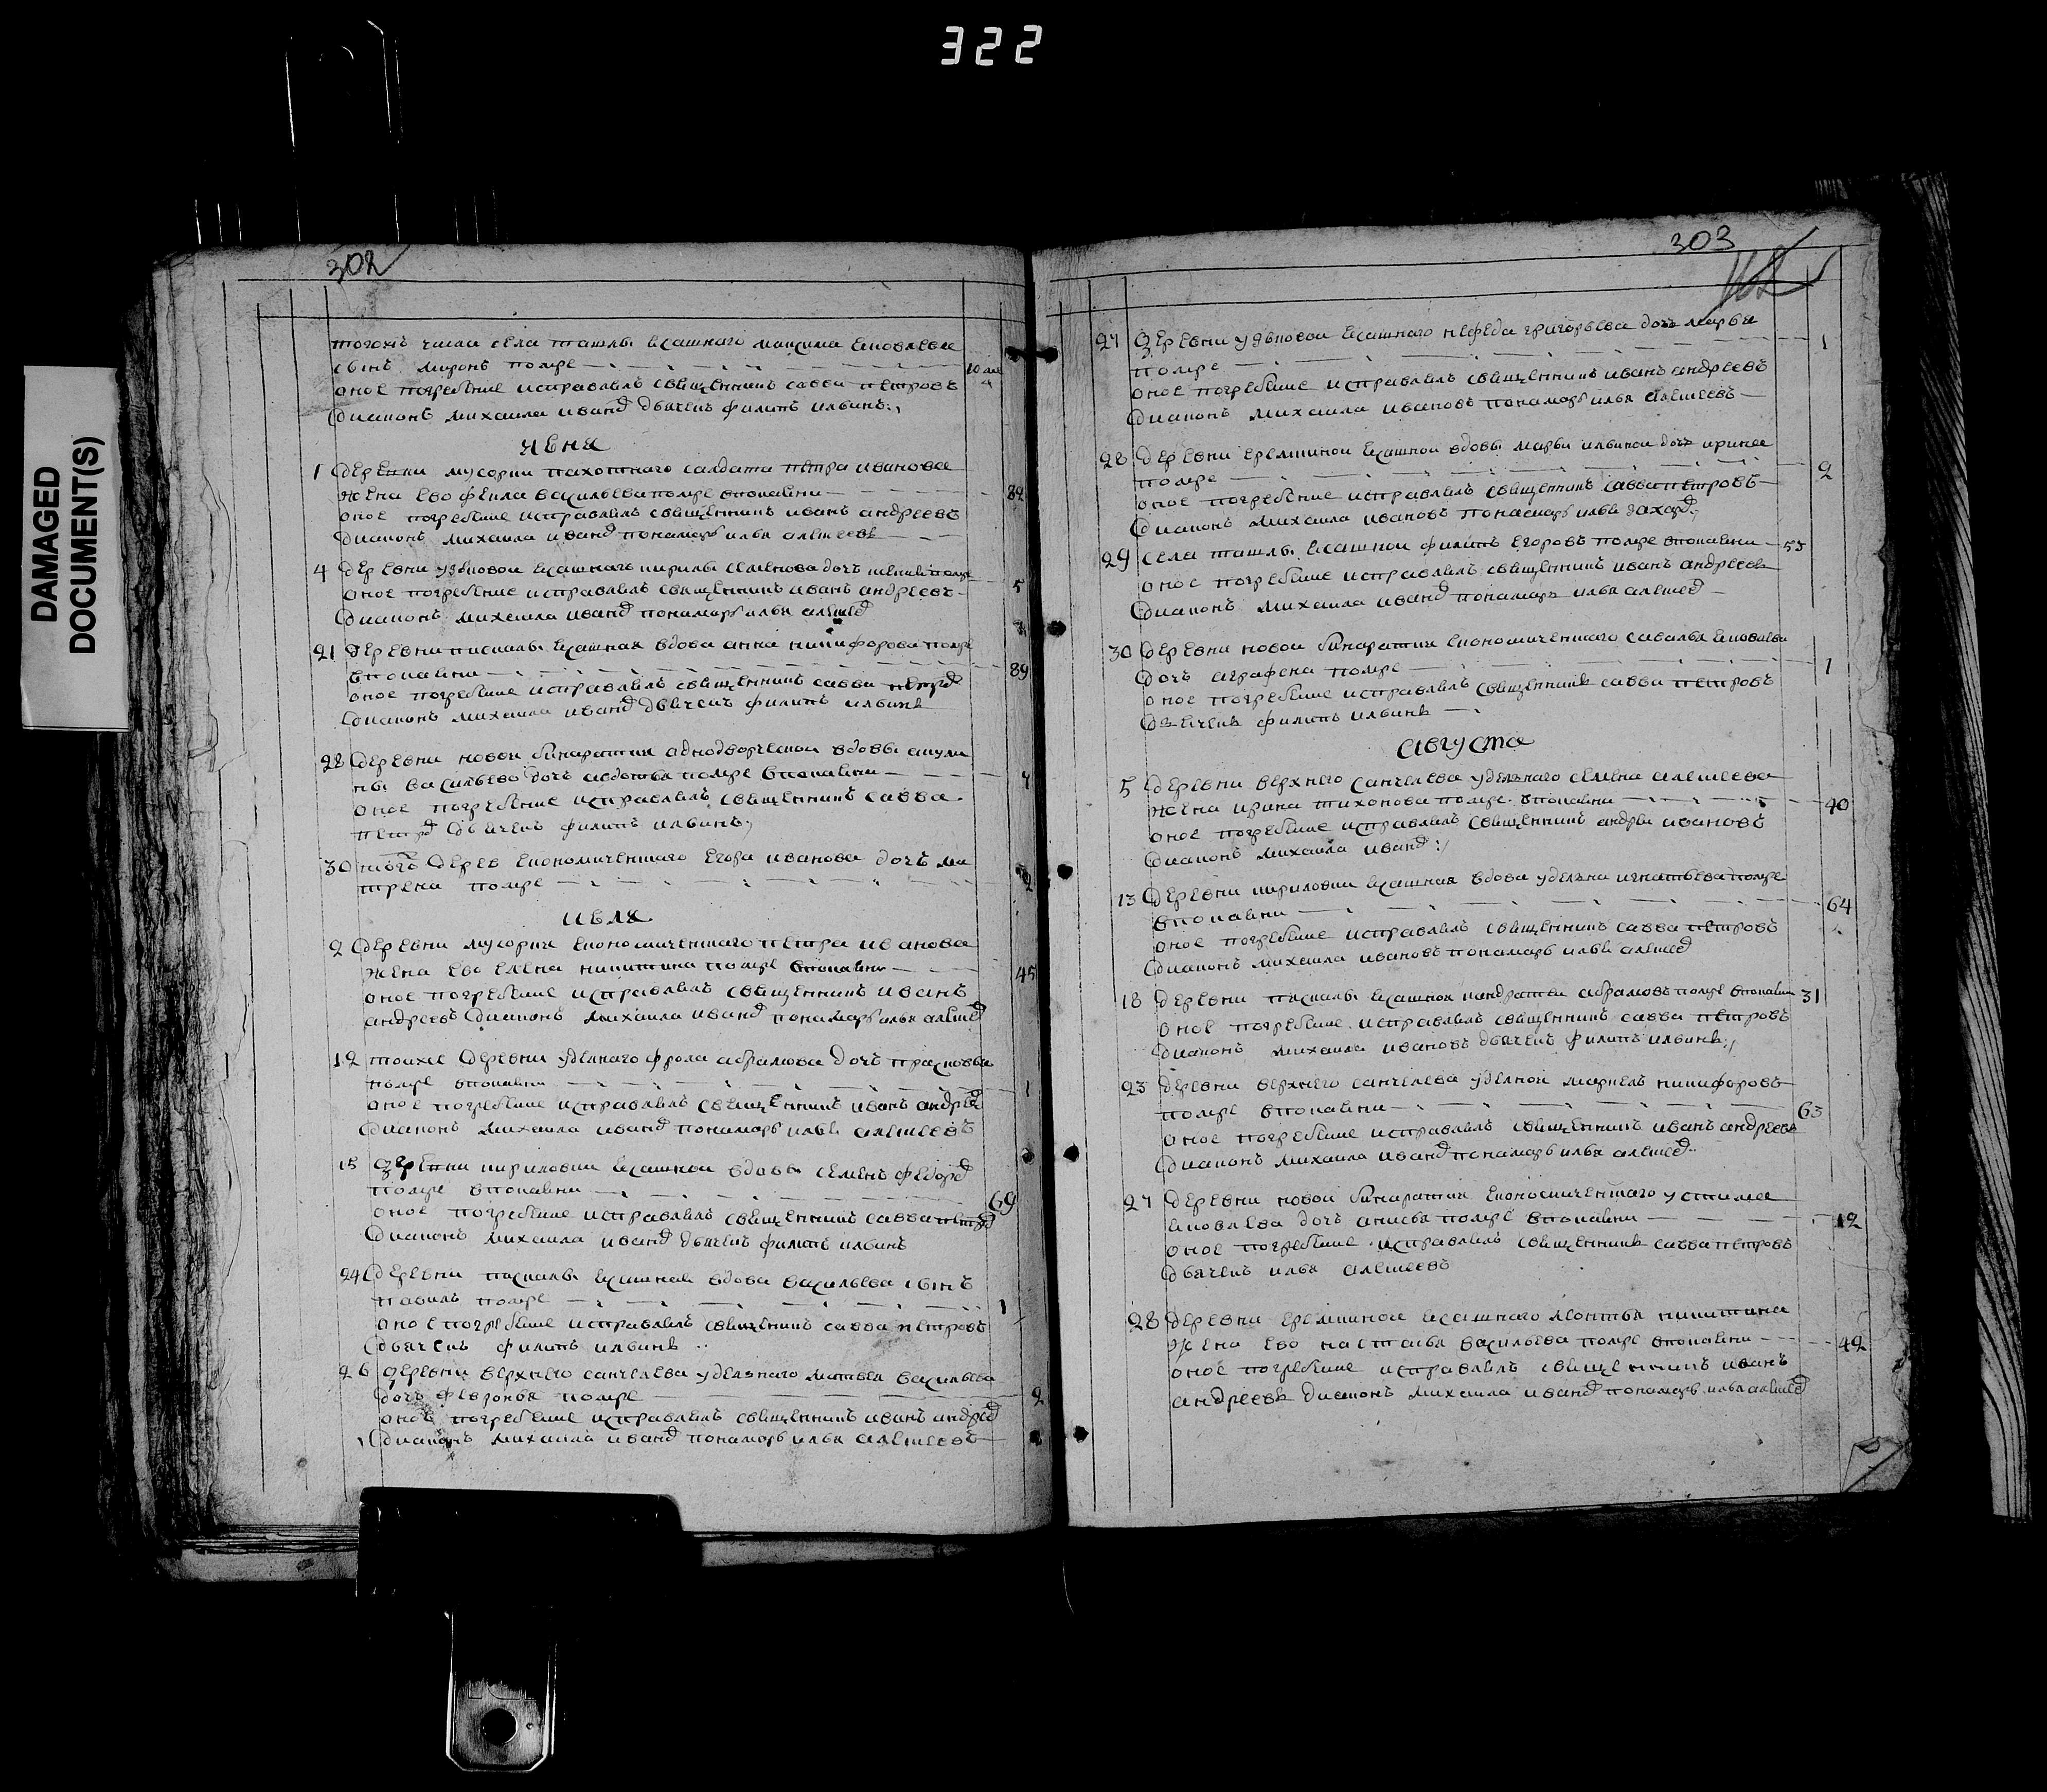 322
DAMAGED
DOCUMENT(S)
302
тогожъ числа села ташлы ясашнаго максима яковлева
сынъ миронъ помре 10 
оное погребение исправлялъ священникъ савва петровъ
диаконъ михаила иванд дьячекъ филипъ ильинъ
июня
1 деревни мусорки пахотнаго салдата петра иванова
жена ево фекла васильева помре впокаяни 82
оное погребение исправлялъ священникъ иванъ андреевъ
диаконъ михаила иванд понамарь илья алексеевъ
4 деревни узюковои ясашнаго кирилы семенова дочь помре 5
оное погребение исправлялъ священникъ иванъ андреевъ
диаконъ михаила иванд понамарь илья алексед
21 деревни пискалы ясашная вдова анна никифорова помре
впокаяни 89
оное погребение исправлялъ священникъ савва петрд
диаконъ михаила иванд дьячекъ филипъ ильинъ
22 деревни новои бинаратки аднодворческои вдовы акули
ны васильево дочь авдотья помре впокаяни
оное погребение исправлялъ священникъ савва
петрд дьячекъ филипъ ильинъ
30 дерев економическаго егора иванова дочь ма
трена помре 2
июля
2 деревни мусорки економическаго петра иванова
жена ево елена никитина помре впокаяни 45
оное погребение исправлялъ священникъ иванъ
андреевъ диаконъ михаила иванд понамарь илья алексед
12 тоиже деревни уделнаго фрола абрамова дочь прасковья
помре впокаяни 1
оное погребение исправлялъ священникъ иванъ андред
диаконъ михаила иванд понамарь илья алексеевъ
15 деревни кириловки ясашнои вдовы семенъ федорд
помре впокаяни 69
оное погребение исправлялъ священникъ савва петрд
диаконъ михаила иванд дьячекъ филипъ ильинъ
24 деревни пискалы ясашнаи вдова васильева сынъ
павилъ помре 1
оное погребение исправлялъ священникъ савва петровъ
дьячекъ филипъ ильинъ
26 деревни верхнего санчелева уделнаго матвея васильева
дочь февронья помре 2
оное погребение исправлялъ священникъ иванъ андред
диаконъ михаила иванд понамарь илья алексеевъ
303
27 деревни узюковои ясашнаго нефеда григорьева дочь марья
помре 1
оное погребение исправлялъ священникъ иванъ андреевъ
диаконъ михаила ивановъ понамарь илья алексеевъ
28 деревни еремкинои ясашнои вдовы марьи ильинои дочь ирина
помре 2
оное погребение исправлялъ священникъ савва петровъ
диаконъ михаила ивановъ понамарь илья захард
29 села ташлы ясашнои филипъ егоровъ помре впокаяни 53
оное погребение исправлялъ священникъ иванъ андреевъ
диаконъ михаила иванд понамарь илья алексед
30 деревни новои бинаратки економическаго савалья яковлева
дочь аграфена помре 1
оное погребение исправлялъ священникъ савва петровъ
дьячекъ филипъ ильинъ
августа
5 деревни верхнего санчелева уделнаго семена алексеева
жена ирина тихонова помре впокаяни 40
оное погребение исправлялъ священникъ андреи ивановъ
диаконъ михаила иванд
13 деревни кириловки ясашная вдова игнатьева помре
впокаяни 64
оное погребение исправлялъ священникъ савва петровъ
диаконъ михаила ивановъ понамарь илья алексед
18 деревни пискалы ясашнои кандратеи абрамовъ помре впокаяни 31
оное погребение исправлялъ священникъ савва петровъ
диаконъ михаила ивановъ дьячекъ филипъ ильинъ
23 деревни верхнего санчелева уделнои маркелъ никифоровъ
помре впокаяни 63
оное погребение исправлялъ священникъ иванъ андреевъ
диаконъ михаила иванд понамарь илья алексед
27 деревни новои бинаратки економическаго устима
яковлева дочь анисья помре впокаяни 12
оное погребение исправлялъ священникъ савва петровъ
дьячекъ илья алексеевъ
28 деревни еремкинои ясашнаго леонтья никитина
жена ево настасья васильева помре впокаяни 42
оное погребение исправлялъ священникъ иванъ
андреевъ диаконъ михаила иванд понамарь илья алексед